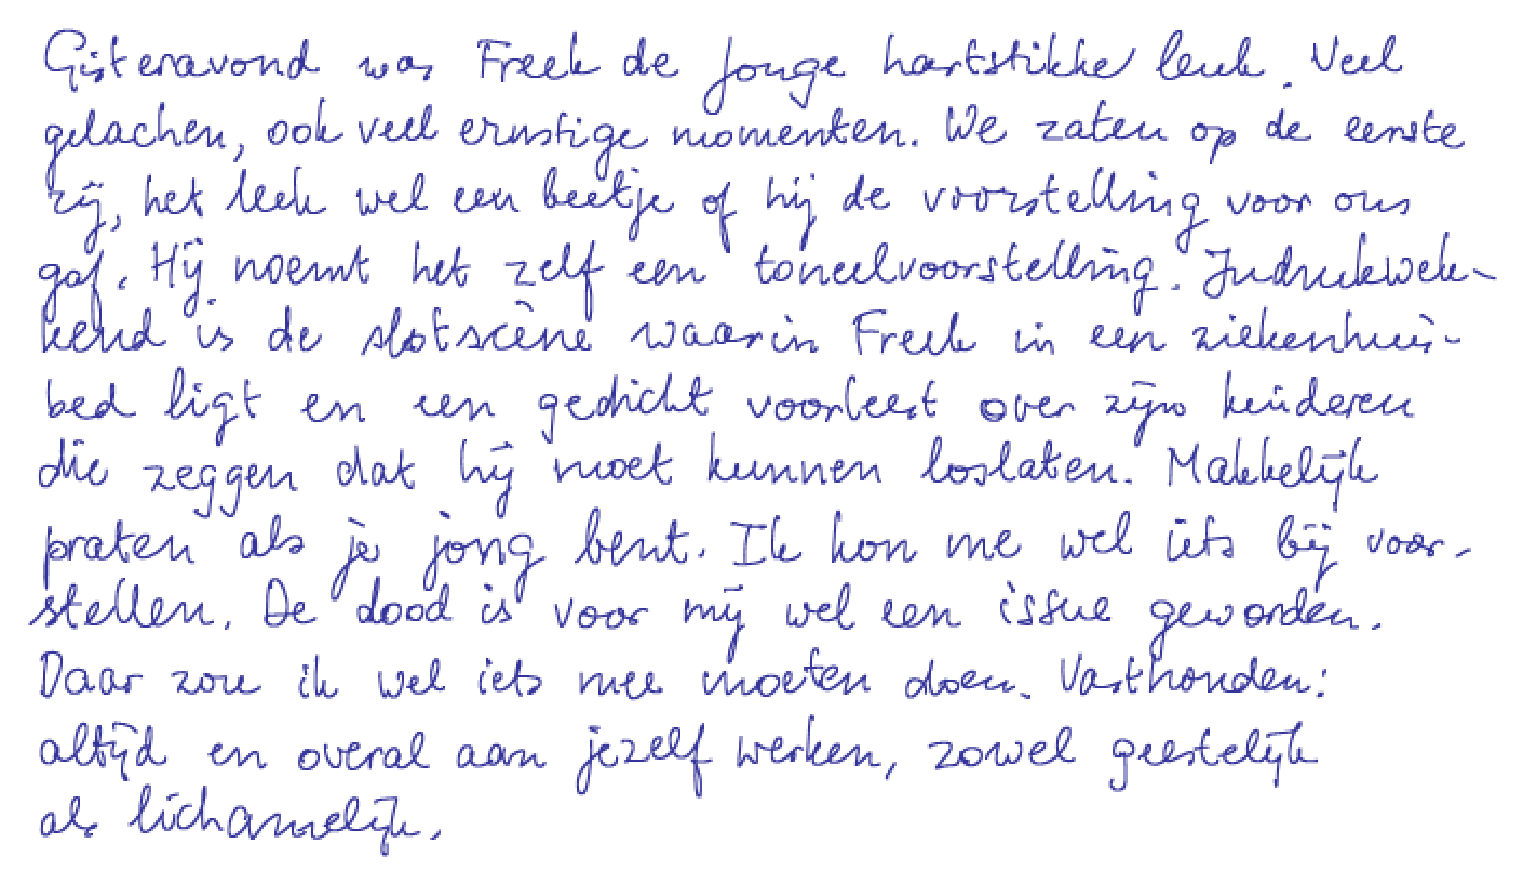 Gisteravond was Freek de Jonge hartstikke leuk. Veel
gelachen, ook veel ernstige momenten. We zaten op de eerste
rij, het leek wel een beetje of hij de voorstelling voor ons
gaf. Hij noemt het zelf een toneelvoorstelling. Indrukwek-
kend is de slotscène waarin Freek in een ziekenhuis-
bed ligt en een gedicht voorleest over zijn kinderen
die zeggen dat hij moet kunnen loslaten. Makkelijk
praten als je jong bent. Ik kon me wel iets bij voor-
stellen. De dood is voor mij wel een issue geworden.
Daar zou ik wel iets mee moeten doen. Vasthouden:
altijd en overal aan jezelf werken, zowel geestelijk
als lichamelijk.